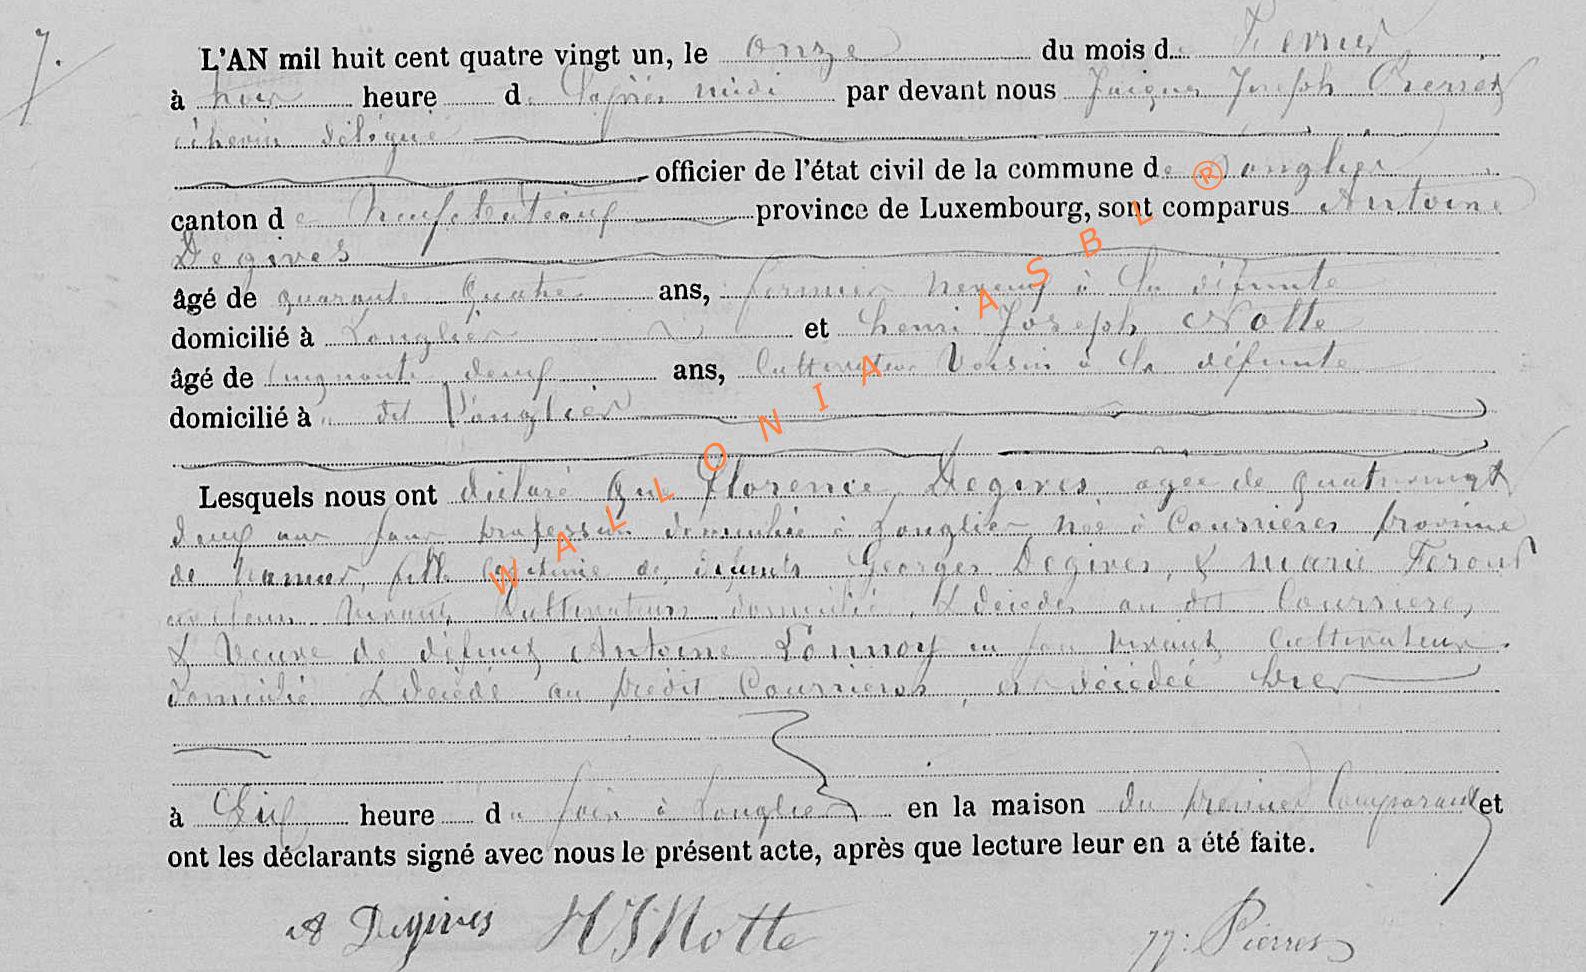 7.
L'AN mil huit cent quatre vingt un, le onze du mois d Fevrier
à trois heure d L'après midi par devant nous Jacques Joseph Pierret
échevin délégué
officier de l'état civil de la commune de Longlier
canton de Neufchateau province de Luxembourg, sont comparus Antoine
Degives
âgé de quarante quatre ans, fermier neveux à la défunte
domicilié à Longlier et henri Joseph Notte
âgé de Cinquante deux ans, Cultivateur Voisin à la défunte
domicilié à dit Longlier
Lesquels nous ont déclaré que Florence Degives agée de quatrevingt
deux ans sans profession domiciliée à Longlier née à Courrieres province
de Namur, fille légitimie de défunts Georges Degives, & marie
vivant, Cultivateurs domicilié, & décédés au dit Courriere,
& Veuve de défunt Antoine Lonnoy en son vivant, Cultivateur
domicilié & décédé au prédit Courrieres, est décédée hier
à heure du soir à Longlier en la maison du premier Comparant et
ont les déclarants signé avec nous le présent acte, après que lecture leur en a été faite.
A Degives HJ Notte JJ: Pierret
WALLONIA ASBL ®